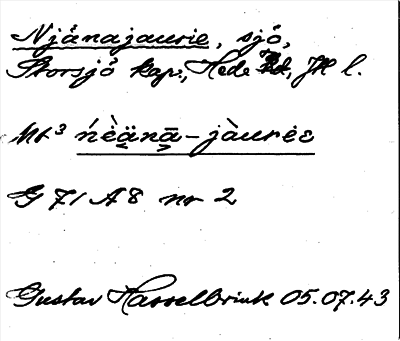 Njånajaurie, sjö,
Storsjö kap., Hede td, JH l.
ńèä̱nā̱-jàurėɛ
G 71 A8 nr 2
Gustav Hasselbrink 05.07.43